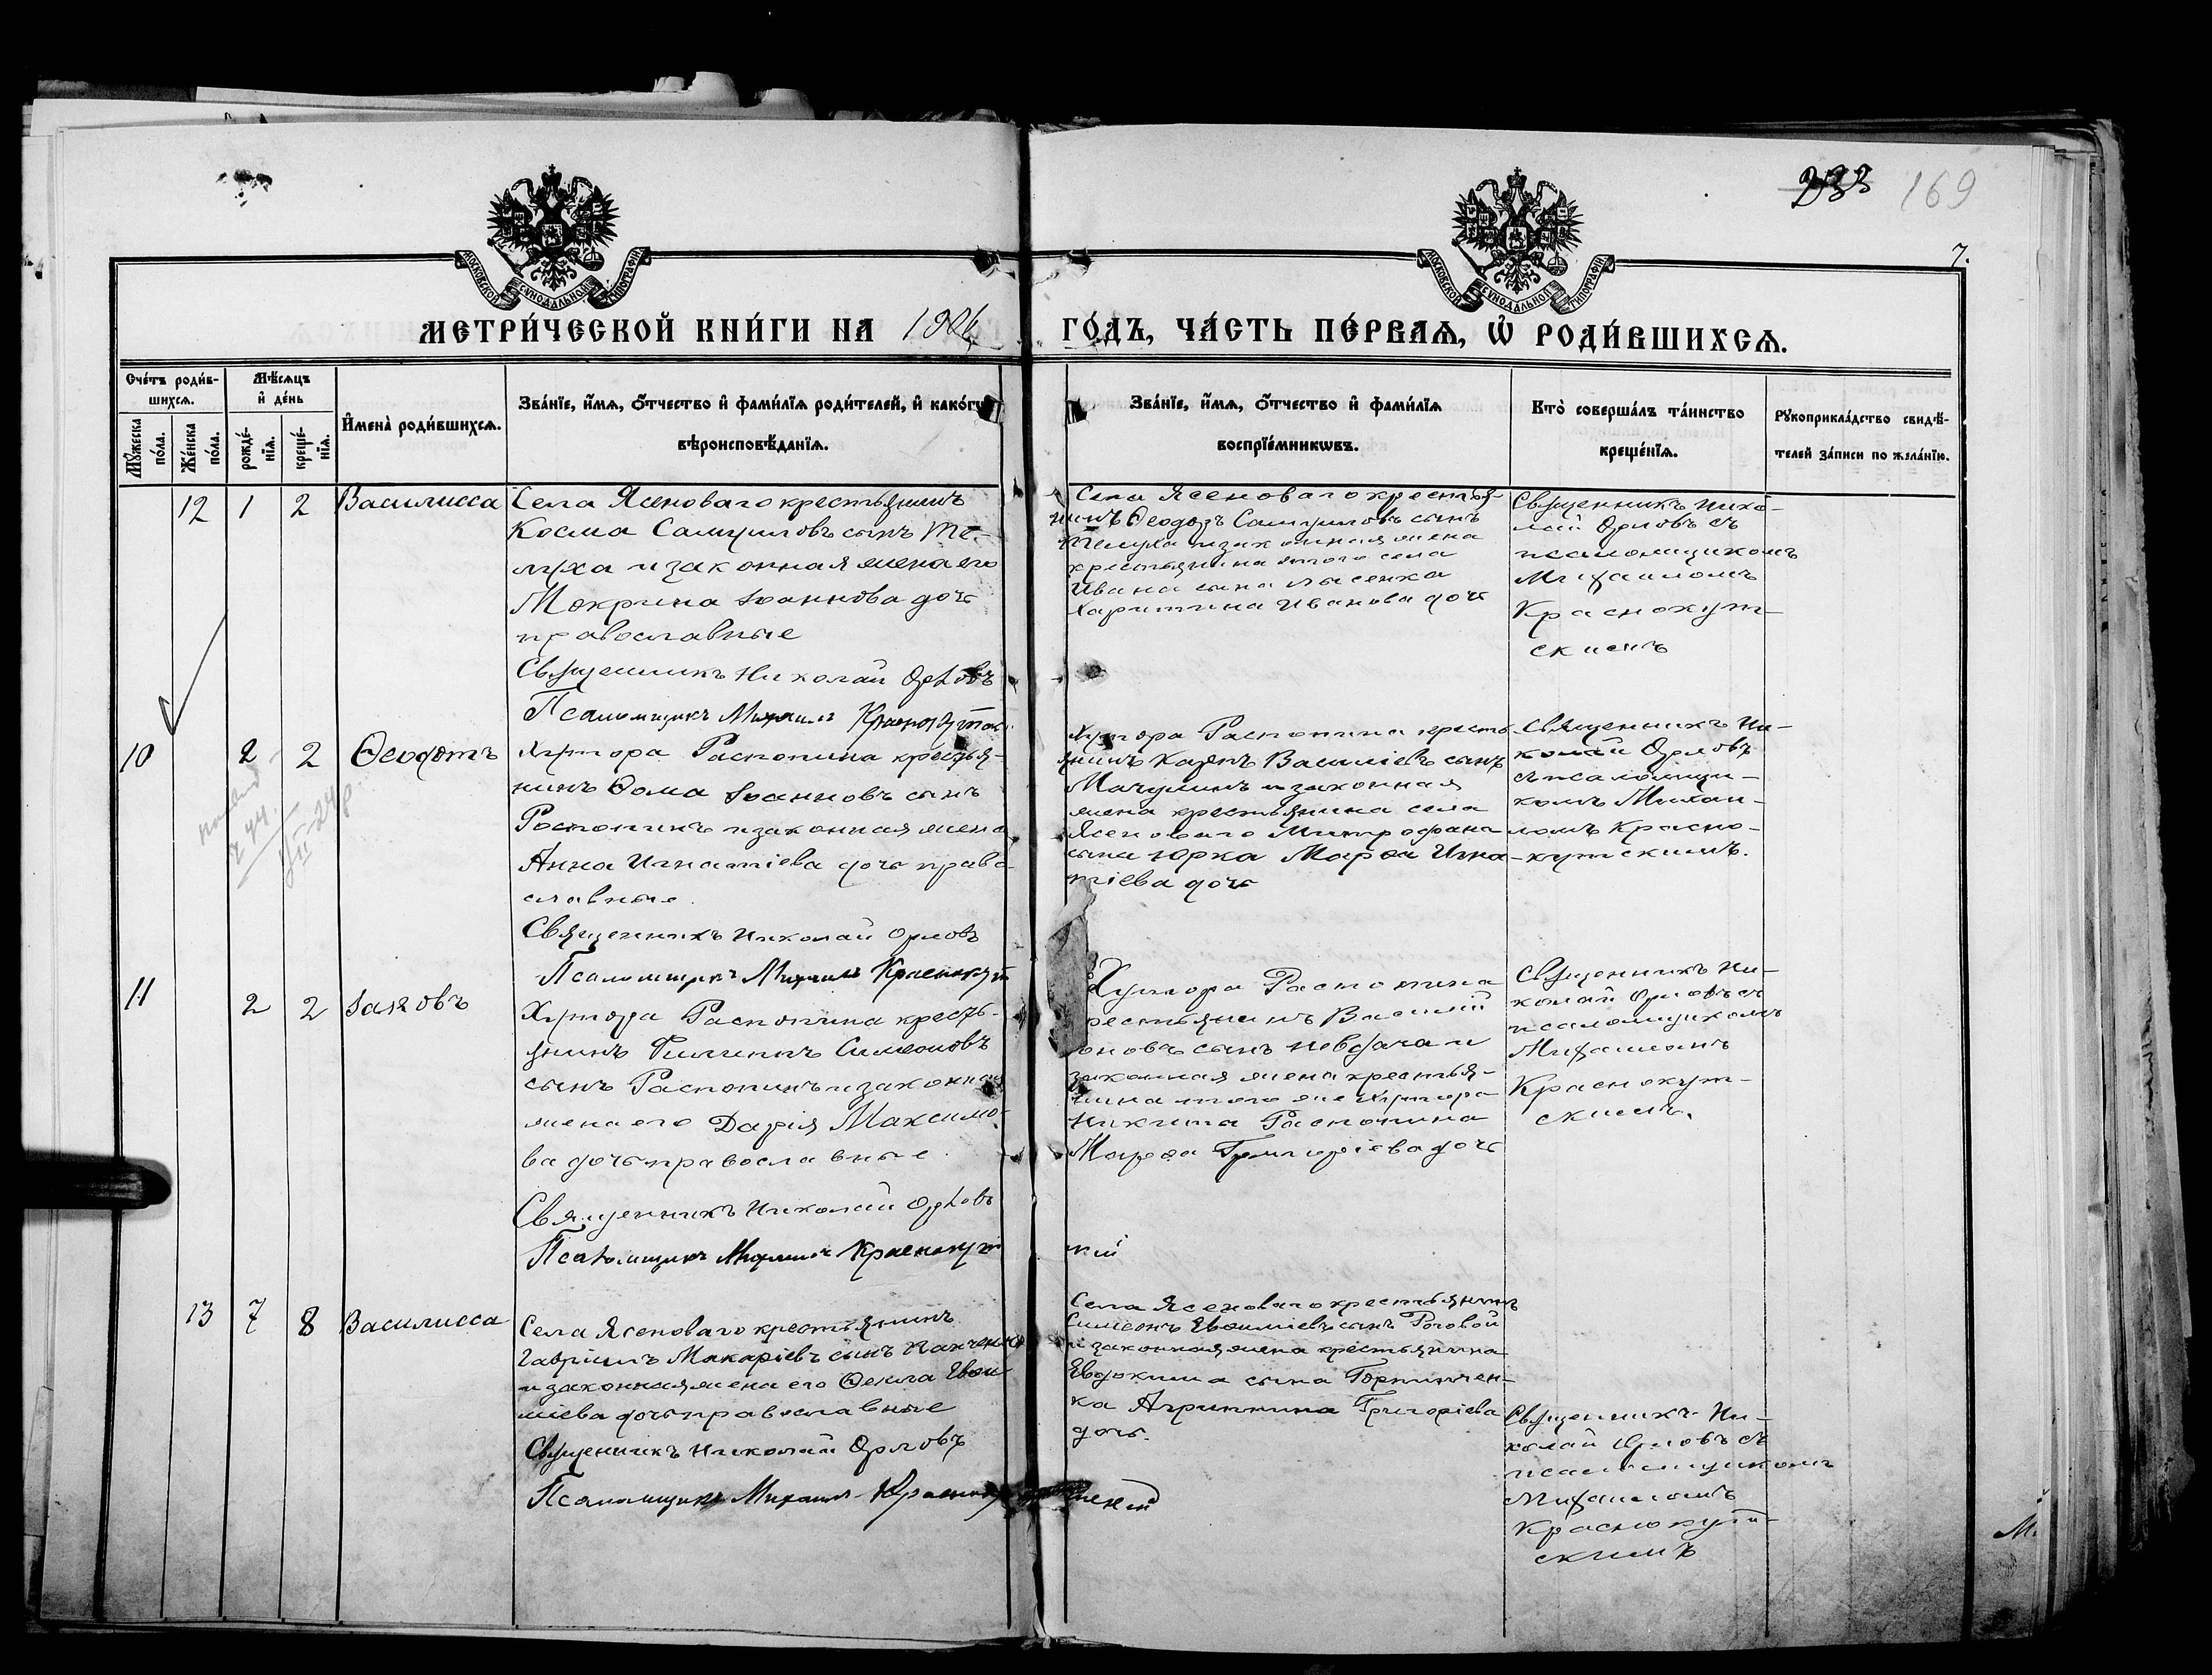 233 169
7.
МОСКОВСКОЙ СѴНОДАЛЬНОЙ ТИПОГРАФІИ
МОСКОВСКОЙ СѴНОДАЛЬНОЙ ТИПОГРАФІИ
МЕТРИ́ЧЕСКОЙ КНИ́ГИ НА 1906
ГО́ДЪ, ЧА́СТЬ ПЕ́РВАѦ, Ѡ҆ РОДИ́ВШИХСѦ.
Сче́тъ роди́в-
шихсѧ.
Мꙋ́жеска по́ла.
Же́нска по́ла.
Мѣ́сѧцъ
и҆ де́нь
рожде́-
нїѧ.
креще́-
нїѧ.
И҆мена̀ роди́вшихсѧ.
Зва́нїе, и҆́мѧ, ѻ҆́тчество и҆ фами́лїѧ роди́телей, и҆ како́гѡ
вѣроисповѣ́данїѧ.
Зва́нїе, и҆́мѧ, ѻ҆́тчество и҆ фами́лїѧ
воспрїе́мникѡвъ.
Кто̀ соверша́лъ та́инство
креще́нїѧ.
Рꙋкоприкла́дство свидѣ́-
телей за́писи по жела́нїю.
12 1 2 Василисса
Села Ясеноваго крестьянинъ
Косма Самуиловъ сынъ Те-
луха и законная жена его
Мокрина Іоаннова дочь
православные
Священникъ Николай Орловъ
Псаломщикъ Михаилъ Краснокутск
Села Ясеноваго крестья-
нинъ Ѳеодоръ Самуиловъ сынъ
Телуха и законная жена
крестьянина этого села
Ивана сына Лысенка
Харитина Иванова дочь
Священникъ Нико-
лай Орловъ съ
псаломщикомъ
Михаиломъ
Краснокут-
скимъ
10 2 2 Ѳеодотъ
Хутора Распопина крестья-
нинъ Ѳома Іоанновъ сынъ
Распопинъ и законная жена
Анна Игнатіева дочь право
славные.
Священникъ Николай Орловъ
Псаломщикъ Михаилъ Краснокут
Хутора Распопина кресть
янинъ Карпъ Василіевъ сынъ
Мачулинъ и законная
жена крестьянина села
Ясеноваго Митрофана
сына Юрка Марѳа Игна-
тіева дочь
Священникъ Ни-
колай Орловъ
съ псаломщи-
комъ Михаи-
ломъ Красно-
кутскимъ.
11 2 2 Іаковъ
Хутора Распопина кресть-
янинъ Филиппъ Симеоновъ
сынъ Распопинъ и законная
жена его Дарія Максимо-
ва дочь православные.
Священникъ Николай Орловъ
Псаломщикъ Михаилъ Краснокут
Хутора Распопина
рестьянинъ Василій
оновъ сынъ Невдача и
законная жена крестья-
нина того же хутора
Никита Распопина
Марѳа Григоріева дочь
кій
Священникъ Ни-
колай Орловъ съ
псаломщикомъ
Михаиломъ
Краснокут-
скимъ.
13 7 8 Василисса
Села Ясеноваго крестьянинъ
Гавріилъ Макаріевъ сынъ Панченко
и законная жена его Ѳекла Евѳи
міева дочь православные
Священникъ Николай Орловъ
Псаломщикъ Михаилъ Краснокутскій
Села Ясеноваго крестьянинъ
Симеонъ Евѳиміевъ сынъ Роговой
и законная жена крестьянина
Евдокима сына Горпинчен-
ка Агриппина Григоріева
дочь.
Священникъ Ни-
колай Орловъ съ
псаломщикомъ
Михаиломъ
Краснокут-
скимъ